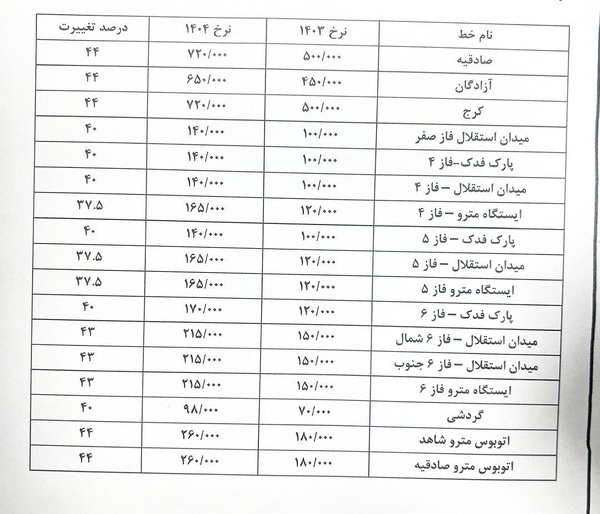 نام خط نرخ ۱۴۰۳ نرخ ۱۴۰۴ درصد تغییرت
صادقیه ۵۰۰/۰۰۰ ۷۲۰/۰۰۰ ۴۴
آزادگان ۴۵۰/۰۰۰ ۶۵۰/۰۰۰ ۴۴
کرج ۵۰۰/۰۰۰ ۷۲۰/۰۰۰ ۴۴
میدان استقلال فاز صفر ۱۰۰/۰۰۰ ۱۴۰/۰۰۰ ۴۰
پارک فدک-فاز ۴ ۱۰۰/۰۰۰ ۱۴۰/۰۰۰ ۴۰
میدان استقلال – فاز ۴ ۱۰۰/۰۰۰ ۱۴۰/۰۰۰ ۴۰
ایستگاه مترو – فاز ۴ ۱۲۰/۰۰۰ ۱۶۵/۰۰۰ ۳۷.۵
پارک فدک – فاز ۵ ۱۰۰/۰۰۰ ۱۴۰/۰۰۰ ۴۰
میدان استقلال – فاز ۵ ۱۲۰/۰۰۰ ۱۶۵/۰۰۰ ۳۷.۵
ایستگاه مترو فاز ۵ ۱۲۰/۰۰۰ ۱۶۵/۰۰۰ ۳۷.۵
پارک فدک – فاز ۶ ۱۲۰/۰۰۰ ۱۷۰/۰۰۰ ۴۰
میدان استقلال – فاز ۶ شمال ۱۵۰/۰۰۰ ۲۱۵/۰۰۰ ۴۳
میدان استقلال – فاز ۶ جنوب ۱۵۰/۰۰۰ ۲۱۵/۰۰۰ ۴۳
ایستگاه مترو فاز ۶ ۱۵۰/۰۰۰ ۲۱۵/۰۰۰ ۴۳
گردشی ۷۰/۰۰۰ ۹۸/۰۰۰ ۴۰
اتوبوس مترو شاهد ۱۸۰/۰۰۰ ۲۶۰/۰۰۰ ۴۴
اتوبوس مترو صادقیه ۱۸۰/۰۰۰ ۲۶۰/۰۰۰ ۴۴